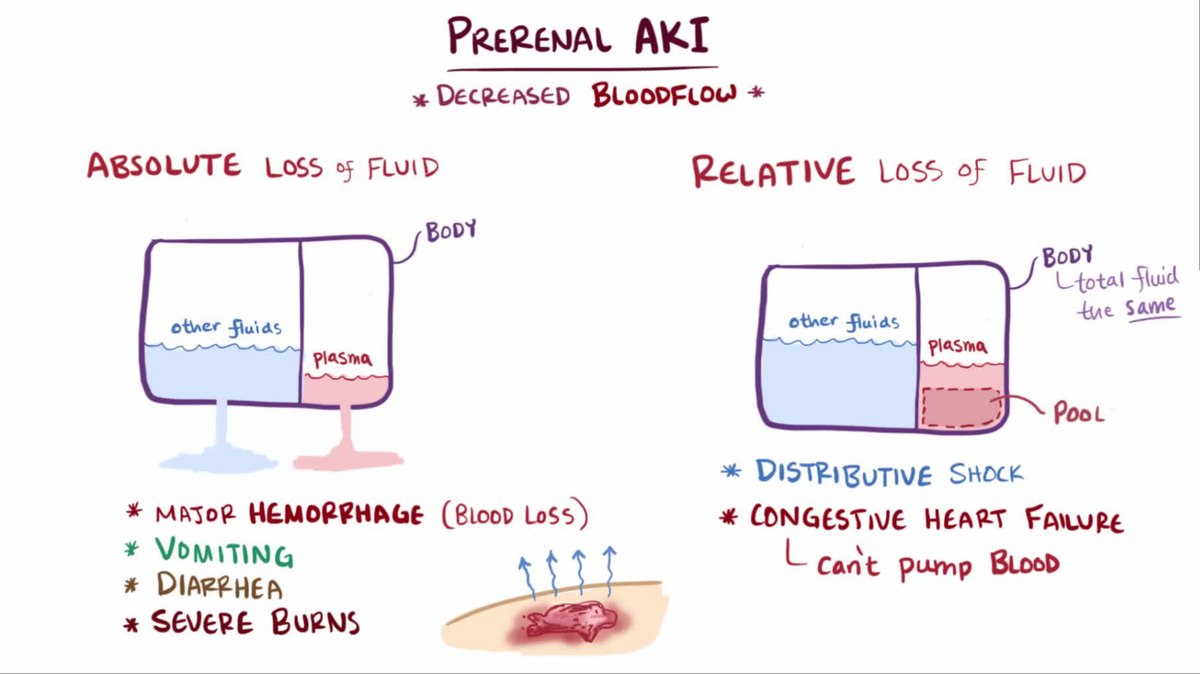 PRERENAL AKI
* DECREASED BLOODFLOW *
ABSOLUTE LOSS of FLUID
BODY
other fluids
plasma
* MAJOR HEMORRHAGE (BLOOD LOSS)
* VOMITING
* DIARRHEA
* SEVERE BURNS
RELATIVE LOSS of FLUID
BODY
total fluid
the same
other fluids
plasma
POOL
* DISTRIBUTIVE SHOCK
* CONGESTIVE HEART FAILURE
can't pump BLOOD